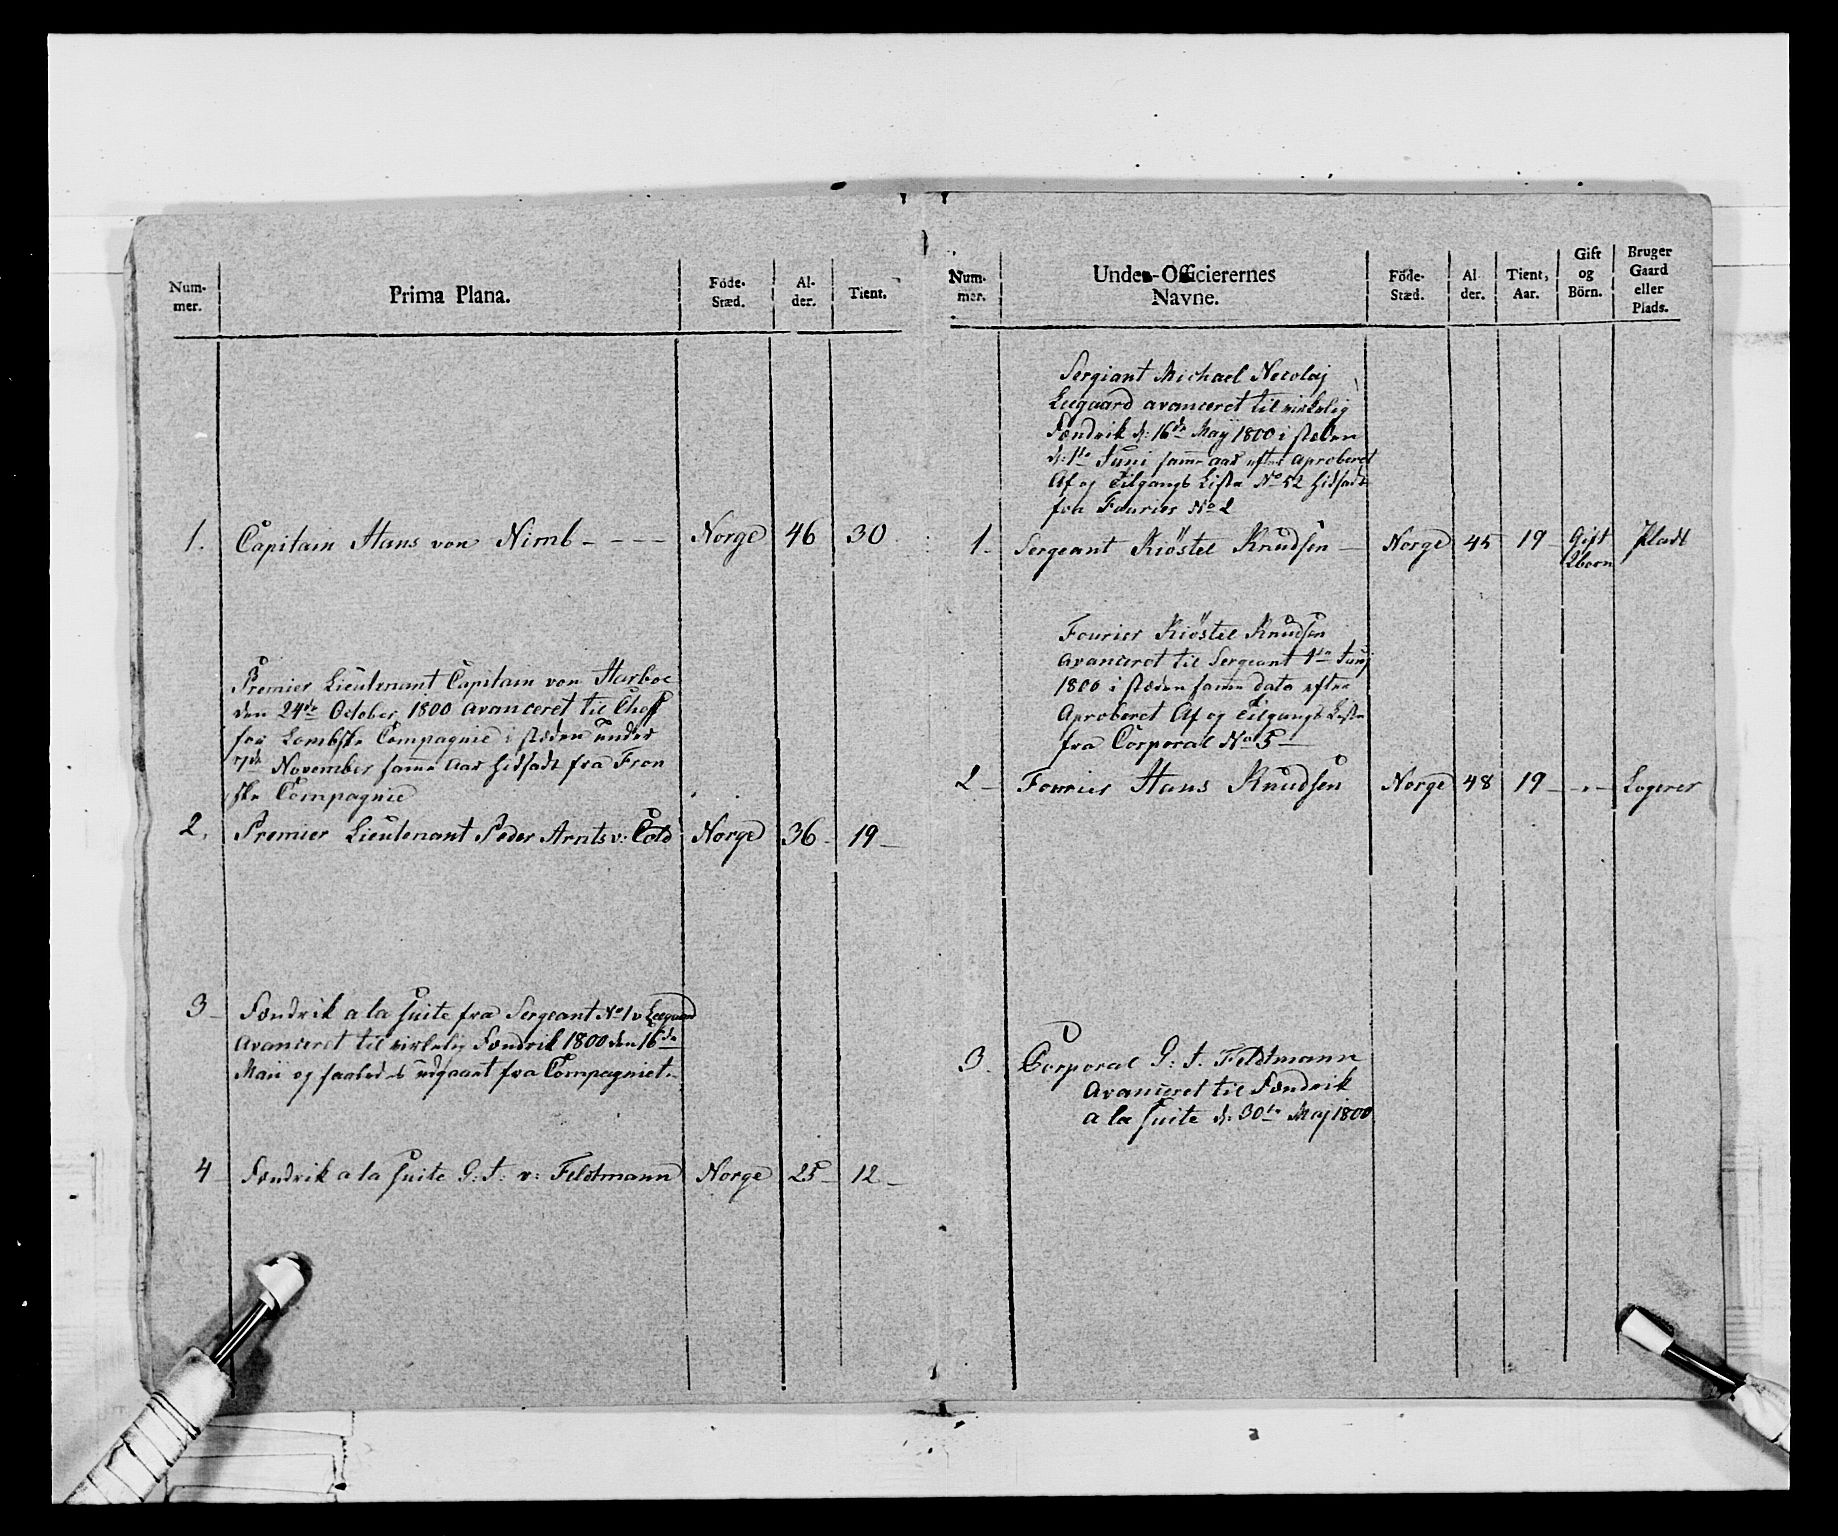 Num-
mer.
Prima Plana.
Föde-
Stæd.
Al-
der.
Tient.
1. Capitain Hans von Nimb - - - - Norge 46 30
Premier Lieutenant Capitain von Harboe
den 24de October 1800 avanceret til Cheff
for Lombske Compagnie i stæden under
7de November samme Aar hidsadt fra Fron
ske Compagnie
2. Premier Lieutenant Peder Arnts v: Cold Norge 36 - 19 -
3 - Fændrik a la suite fra Sergeant No 1 v Leegaard
Avanceret til virkelig Fændrik 1800 den 16de
Maii og saaledes udgaaet fra Compagniet.
4 - Fændrik a la suite G: f: v: Feldtmann Norge 25 - 12 -
Num-
mer.
Under-Officierernes
Navne.
Föde-
Stæd.
Al
der.
Tient,
Aar.
Gift
og
Börn.
Bruger
Gaard
eller
Plads.
Sergiant Michael Necolaj
Leegaard avanceret til virkelig
Fændrik d: 16de Maÿ 1800 i stæden
d: 1te Juni samme aar efter aproberet
Af og Tilgangs Liste No 52 hidsadt
fra Fourier No 2
1 - Sergeant Kiøstel Knudsen - Norge 45 19 - Gift Pladt
2 børn
Fourier Kiøstel Knudsen
avanceret til Sergeant 1te Junj
1800 i stæden samme dato efter
Aproberet Af og Tilgangs Liste
fra Corporal No 5 -
2 - Fourier Hans Knudsen Norge 48 19 - - " - Logerer
3. Corporal G: f. Feldtmann
Avanceret til Fændrik
a la suite d: 30te Maj 1800